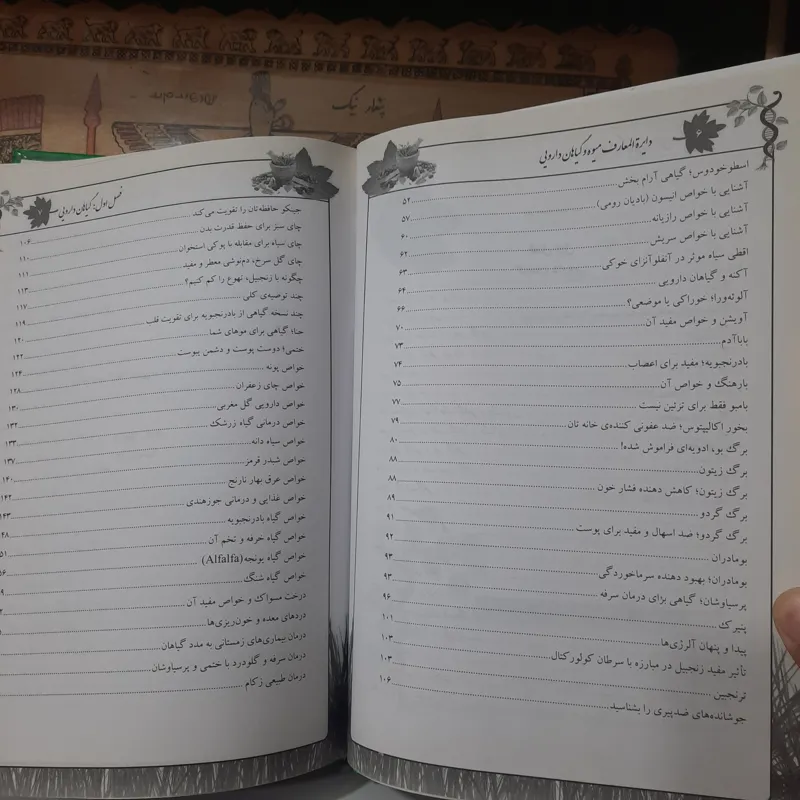 پندار نیک
دایرة‌المعارف میوه و گیاهان دارویی
۶
اسطوخودوس؛ گیاهی آرام بخش ۵۲
آشنایی با خواص انیسون (بادیان رومی) ۵۷
آشنایی با خواص رازیانه ۶۰
آشنایی با خواص سریش ۶۲
اقطی سیاه موثر در آنفلوآنزای خوکی ۶۳
آکنه و گیاهان دارویی ۶۴
آلوئه‌ورا؛ خوراکی یا موضعی؟ ۶۶
آویشن و خواص مفید آن ۷۰
باباآدم ۷۳
بادرنجبویه؛ مفید برای اعصاب ۷۴
بارهنگ و خواص آن ۷۵
بامبو فقط برای تزئین نیست ۷۷
بخور اکالیپتوس؛ ضد عفونی کننده‌ی خانه تان ۷۹
برگ بو، ادویه‌ای فراموش شده! ۸۰
برگ زیتون ۸۸
برگ زیتون؛ کاهش دهنده فشار خون ۸۸
برگ گردو ۸۹
برگ گردو؛ ضد اسهال و مفید برای پوست ۹۱
بومادران ۹۲
بومادران؛ بهبود دهنده سرماخوردگی ۹۳
پرسیاوشان؛ گیاهی برای درمان سرفه ۹۳
پنیرک ۹۶
پیدا و پنهان آلرژی‌ها ۱۰۱
تأثیر مفید زنجبیل در مبارزه با سرطان کولورکتال ۱۰۳
ترنجبین ۱۰۳
جوشانده‌های ضدپیری را بشناسید ۱۰۶
فصل اول: گیاهان دارویی
۷
جینکو حافظه‌تان را تقویت می‌کند ۱۰۶
چای سبز برای حفظ قدرت بدن ۱۱۰
چای سیاه برای مقابله با پوکی استخوان ۱۱۱
چای گل سرخ، دم‌نوشی معطر و مفید ۱۱۳
چگونه با زنجبیل، تهوع را کم کنیم؟ ۱۱۷
چند توصیه‌ی کلی ۱۱۹
چند نسخه گیاهی از بادرنجبویه برای تقویت قلب ۱۲۰
حنا؛ گیاهی برای موهای شما ۱۲۲
ختمی؛ دوست پوست و دشمن یبوست ۱۲۴
خواص پونه ۱۲۸
خواص چای زعفران ۱۳۰
خواص دارویی گل مغربی ۱۳۲
خواص درمانی گیاه زرشک ۱۳۳
خواص سیاه دانه ۱۳۷
خواص شبدر قرمز ۱۴۰
خواص عرق بهار نارنج ۱۴۲
خواص غذایی و درمانی جوزهندی ۱۴۳
خواص گیاه بادرنجبویه ۴۸
خواص گیاه خرفه و تخم آن ۵۱
خواص گیاه یونجه (Alfalfa) ۵۶
خواص گیاه شنگ ۹
درخت مسواک و خواص مفید آن
دردهای معده و خون‌ریزی‌ها
درمان بیماری‌های زمستانی به مدد گیاهان
درمان سرفه و گلودرد با ختمی و پرسیاوشان
درمان طبیعی زکام